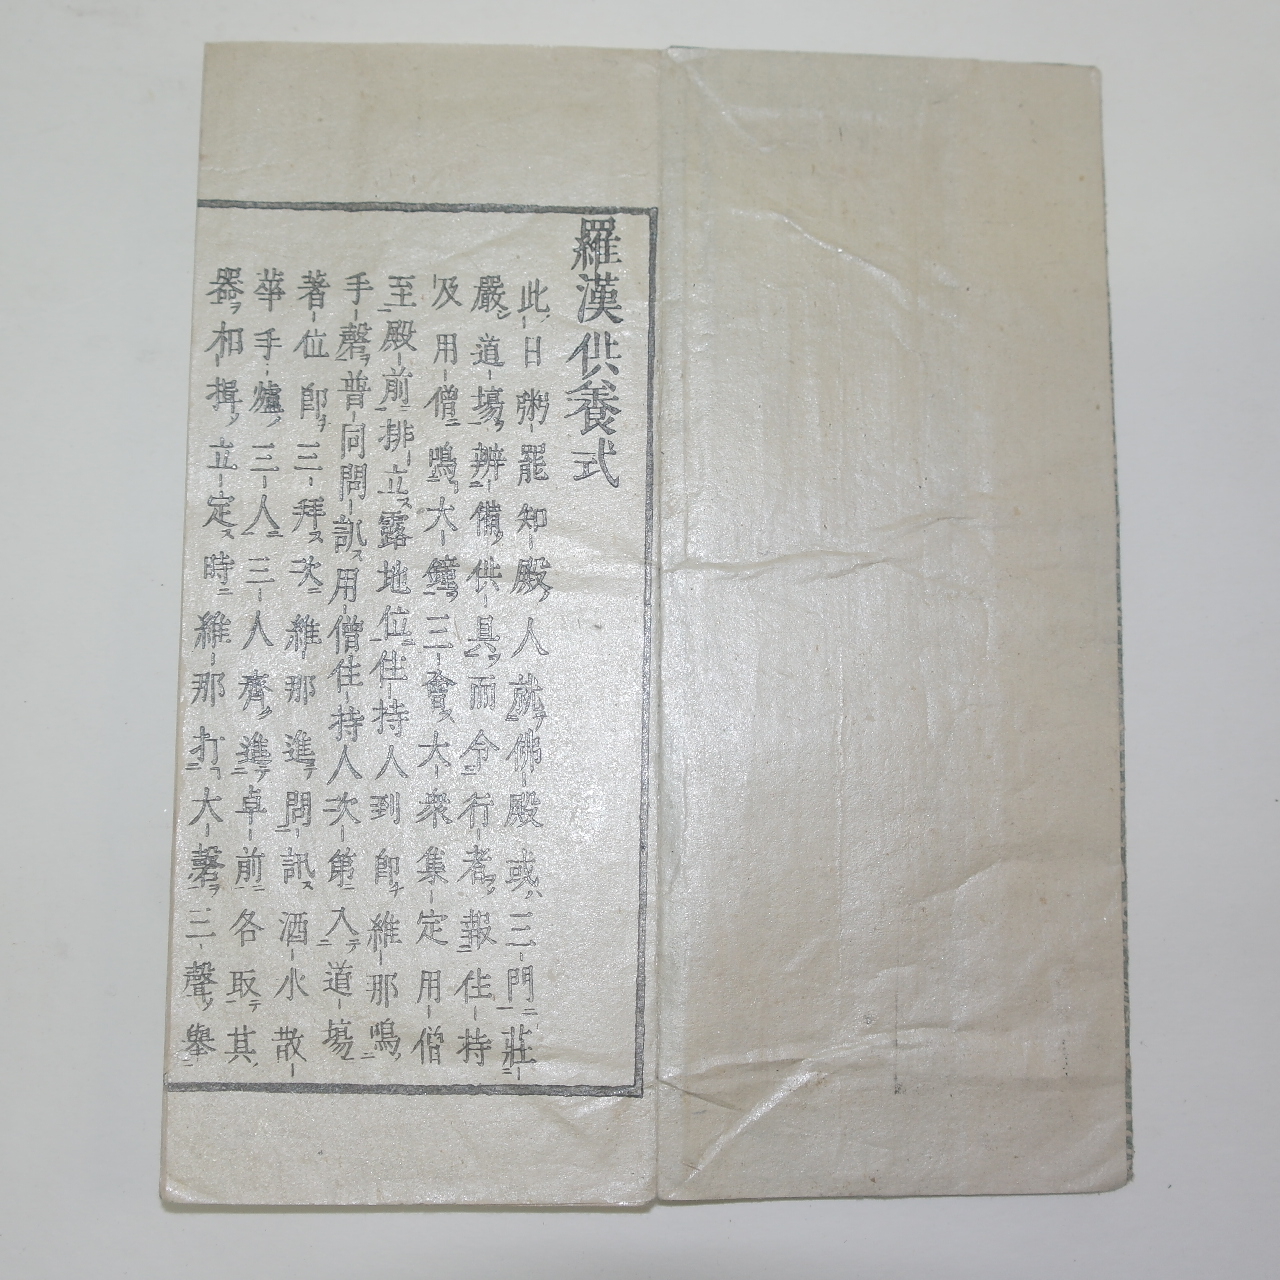 羅漢供養式
此日粥罷知殿人就佛殿或三門莊
嚴道場辨備供具而令行者報住持
及用僧鳴大鐘三會大衆集定用僧
至殿前排立露地位住持人到卽維那鳴
手磬普同問訊用僧住持人次第入道場
著位卽三拜次維那進問訊洒水散
華手爐三人三人齊進卓前各取其
器相揖立定時維那打大磬三聲舉